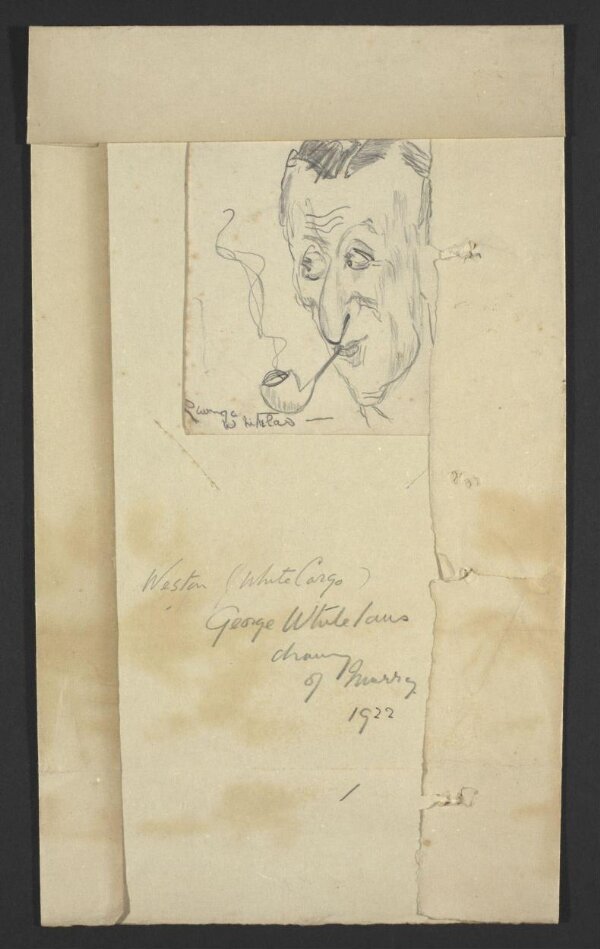 George
Whitelaw
Weston (White Cargo)
George Whitelaws
drawing
of Murray
1922